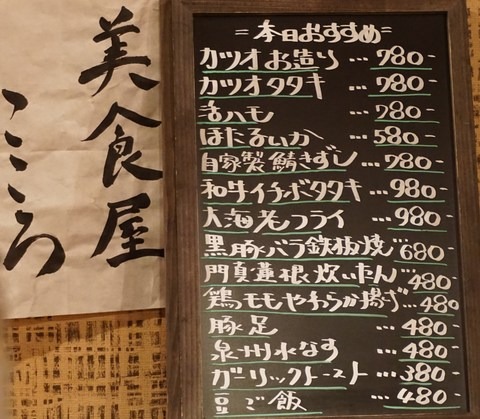 美食屋
こころ
=本日おすすめ=
カツオお造り…780-
カツオタタキ…780-
活ハモ…780-
ほたるいか…580-
自家製鯖きずし…780-
和牛イチボタタキ…980-
大海老フライ…980-
黒豚バラ鉄板焼…680-
門真蓮根炊いたん…480-
鶏モモやわらか揚げ…480
豚足…480-
泉州水なす…480-
ガーリックトースト…380-
豆ご飯…480-